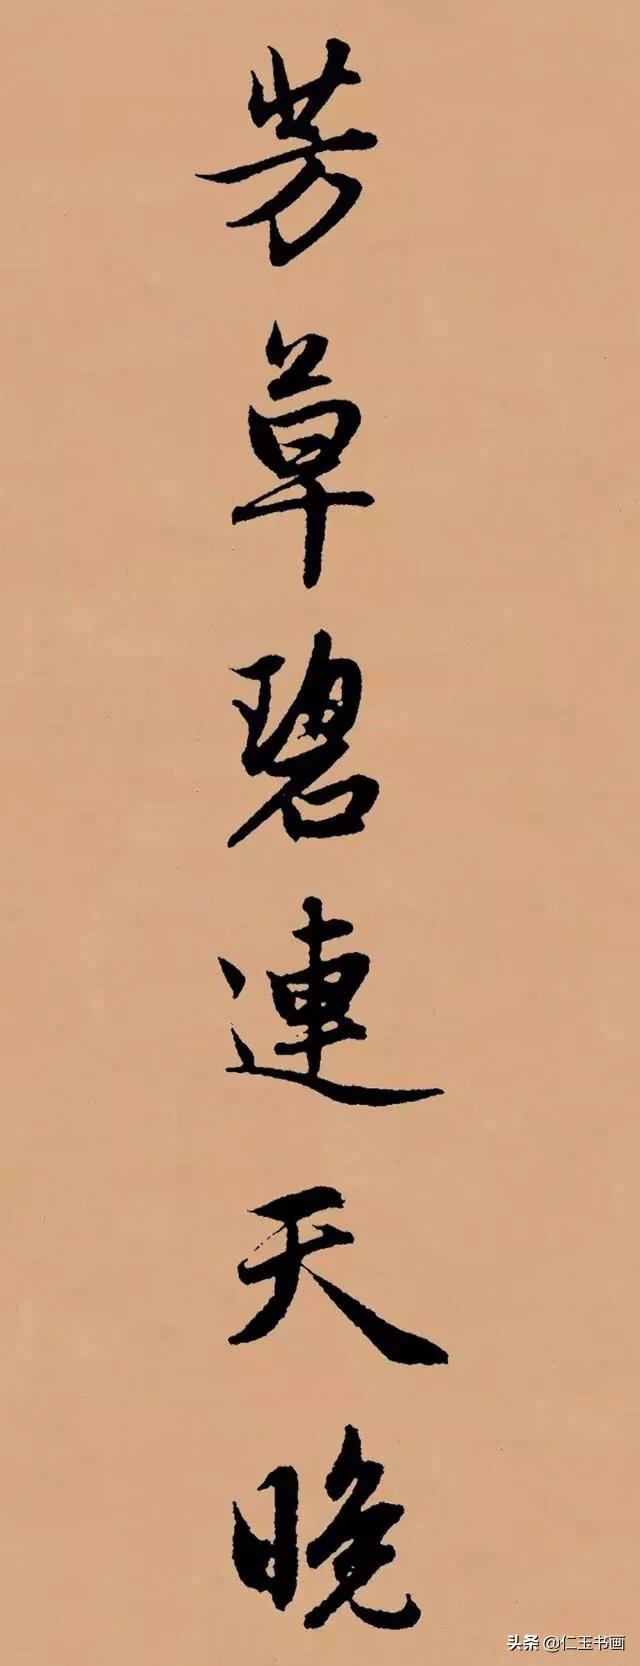 芳草碧連天晚
头条 @仁玉书画